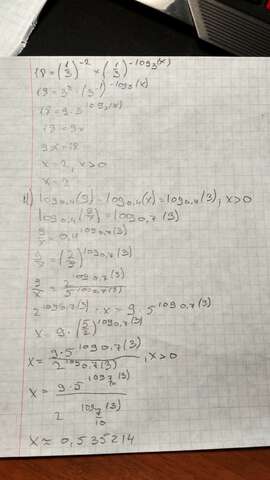 18 = (1/3)^-2 × (1/3)^-log₃(x)
18 = 3² · (3⁻¹)^-log₃(x)
18 = 9 · 3^log₃(x)
18 = 9x
9x = 18
x = 2, x>0
x = 2
log₀,₄(9) - log₀,₄(x) = log₀,₇(3), x>0
log₀,₄(9/x) = log₀,₇(3)
9/x = 0,4^log₀,₇(3)
9/x = (2/5)^log₀,₇(3)
9/x = 2^log₀,₇(3) / 5^log₀,₇(3)
2^log₀,₇(3) · x = 9 · 5^log₀,₇(3)
x = 9 · (5/2)^log₀,₇(3)
x = 9·5^log₀,₇(3) / 2^log₀,₇(3), x>0
x = 9·5^log_7/10(3) / 2^log_7/10(3)
x ≈ 0,535214